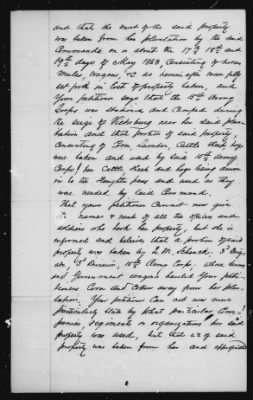 and that the most of the said property
was taken from her plantation by the said
Commands on or about the 17th 18th and
19th days of May 1863, consisting of horses
Mules, wagons, &c as herein after more fully
set forth in list of property taken, and
Your petitioner says that the 15th Army
Corps was stationed and Camped during
the siege of Vicksburg near her said plan-
tation and that portion of said property,
consisting of Corn, Lumber, Cattle, Hogs &c
was taken and used by said 15th Army
Corps, her Cattle Sheep and hogs being driven
in to the slaughter pens and used as they
was needed by said Command.
That your petitioner Cannot now give
the names & rank of all the officers and
soldiers who took her property, but she is
informed and believes that a portion of said
property was taken by L. M. 3rd Brig-
ade, 1st Division, 15th Army Corps, whose teams
and Government wagons hauled Your peti-
tioners Corn and Cotton away from her plan-
tation. Your petitioner Can not now more
particularly state by what particular Com-
panies Regiments or organizations her said
property was used, but that all of said
property was taken from her and